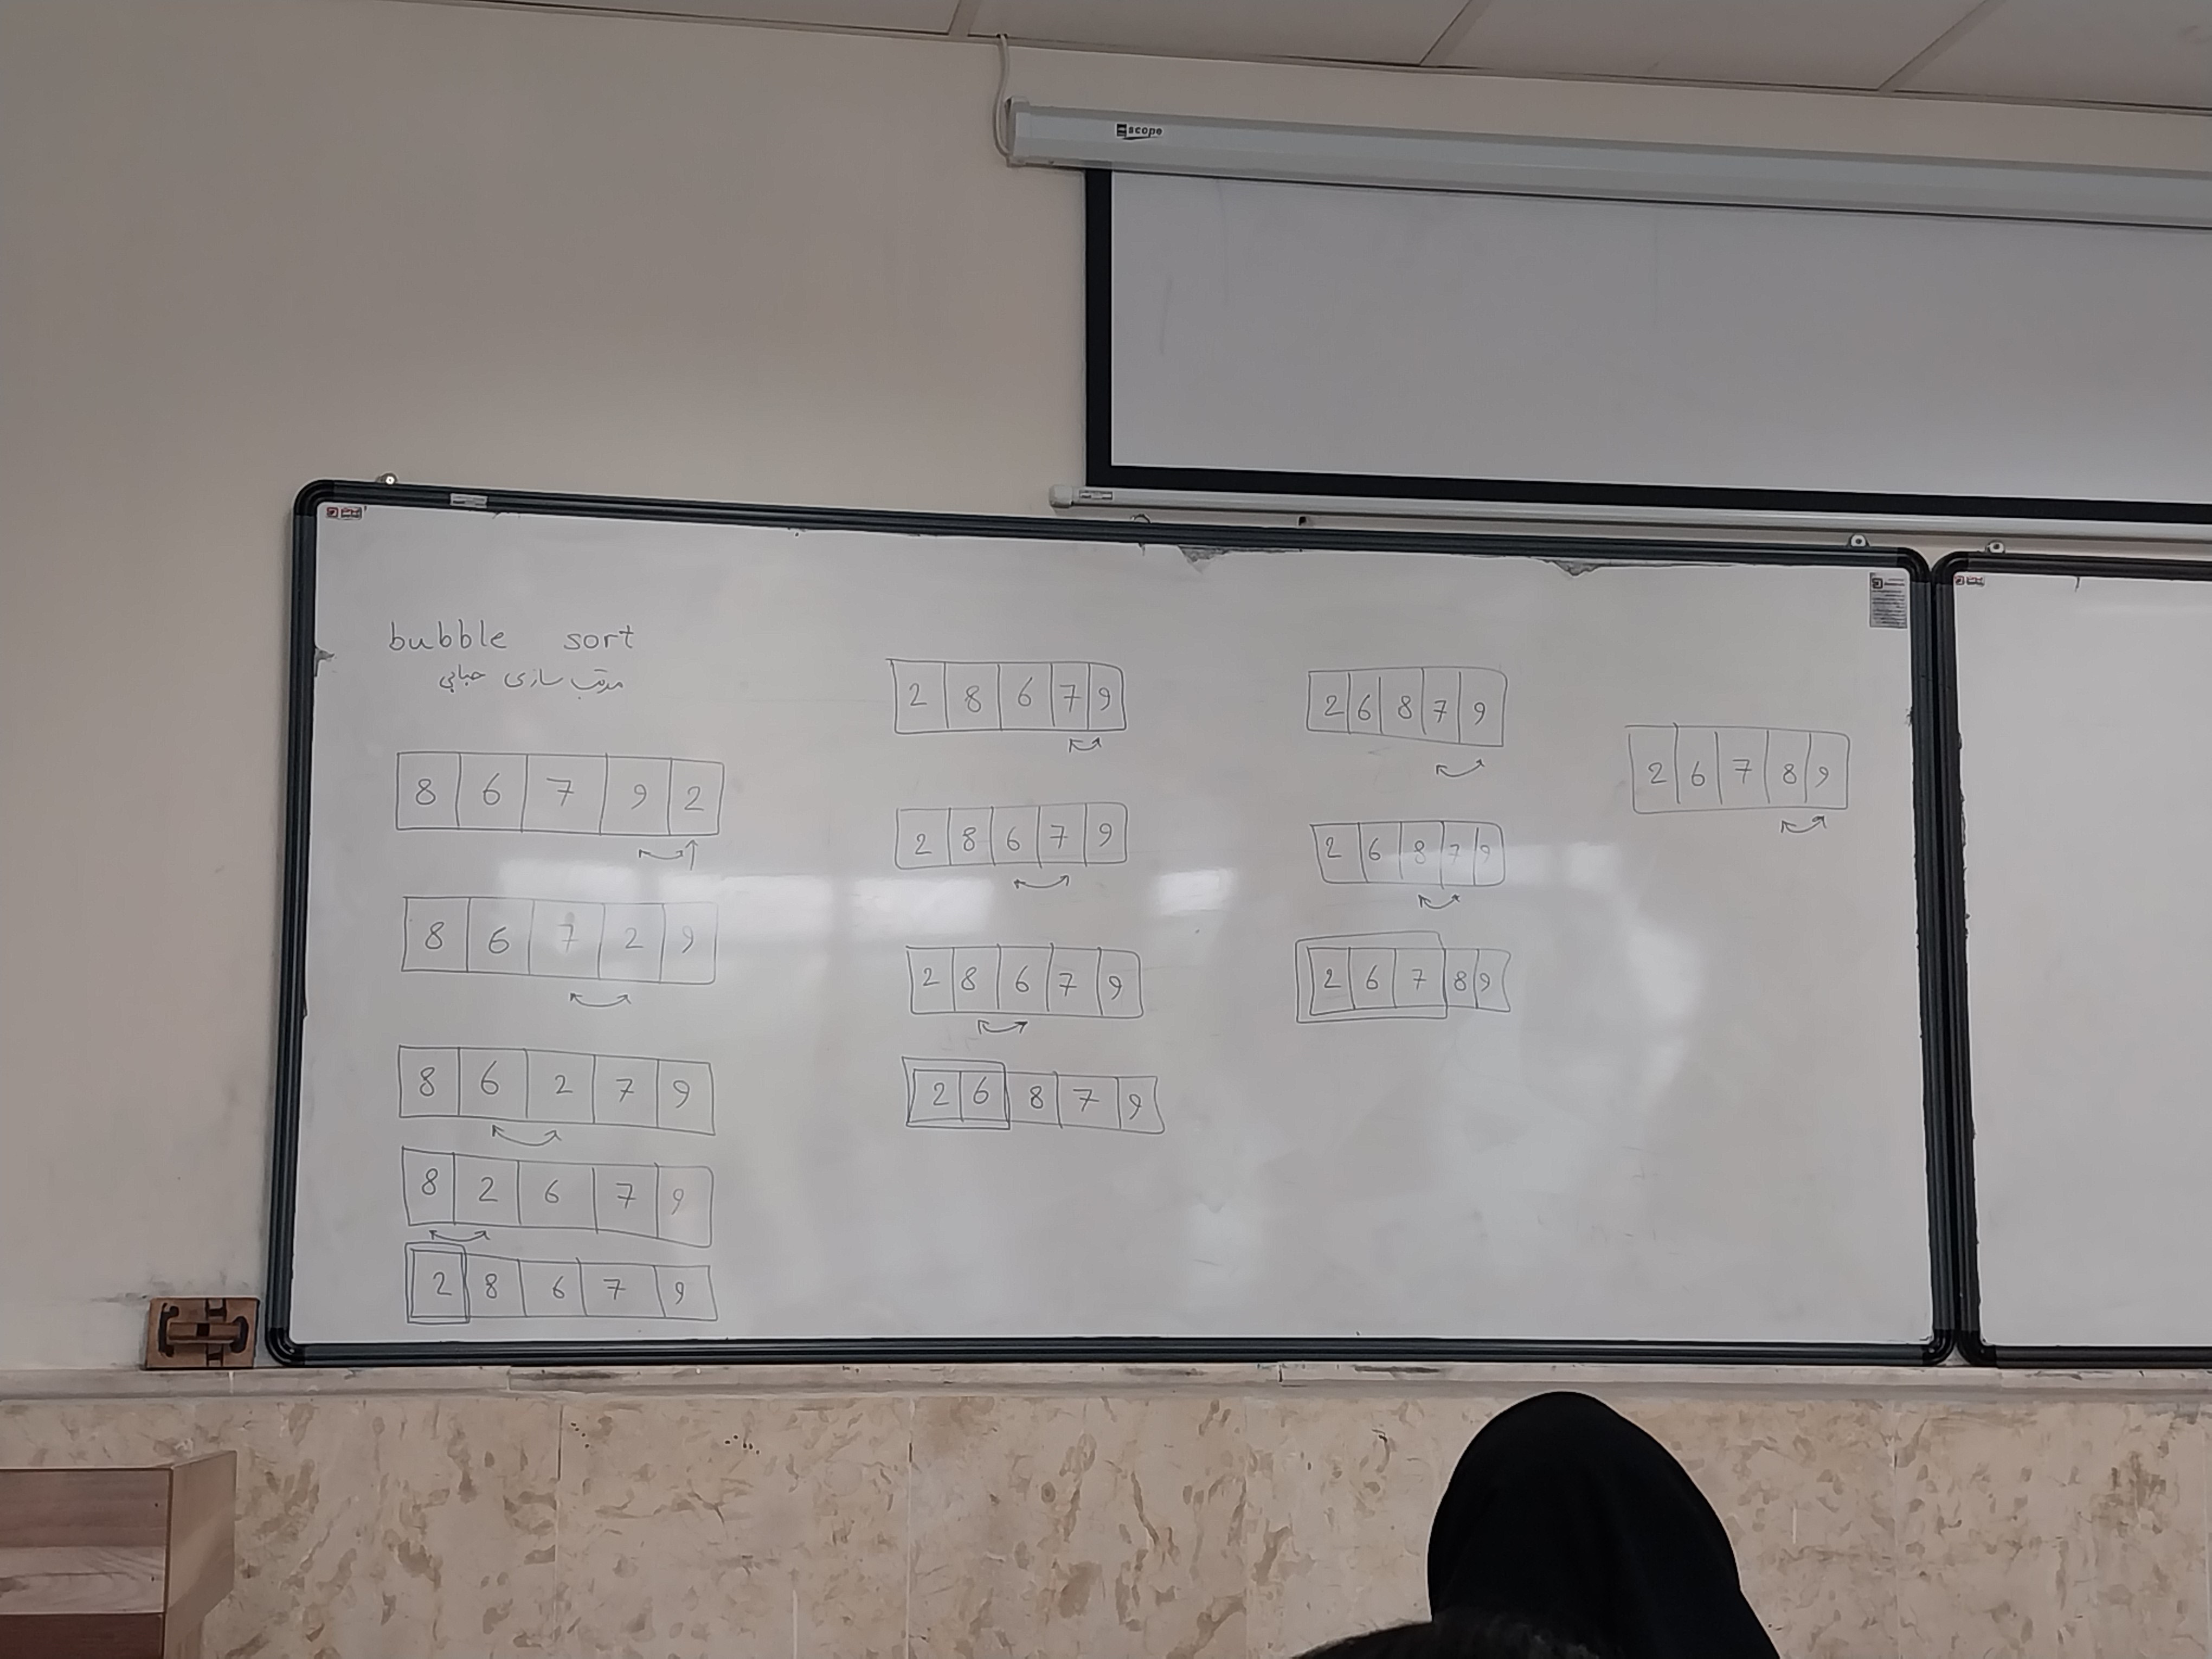 scope
bubble sort
مرتب سازی حبابی
8 6 7 9 2
8 6 7 2 9
8 6 2 7 9
8 2 6 7 9
2 8 6 7 9
2 8 6 7 9
2 8 6 7 9
2 8 6 7 9
2 6 8 7 9
2 6 8 7 9
2 6 8 7 9
2 6 7 8 9
2 6 7 8 9